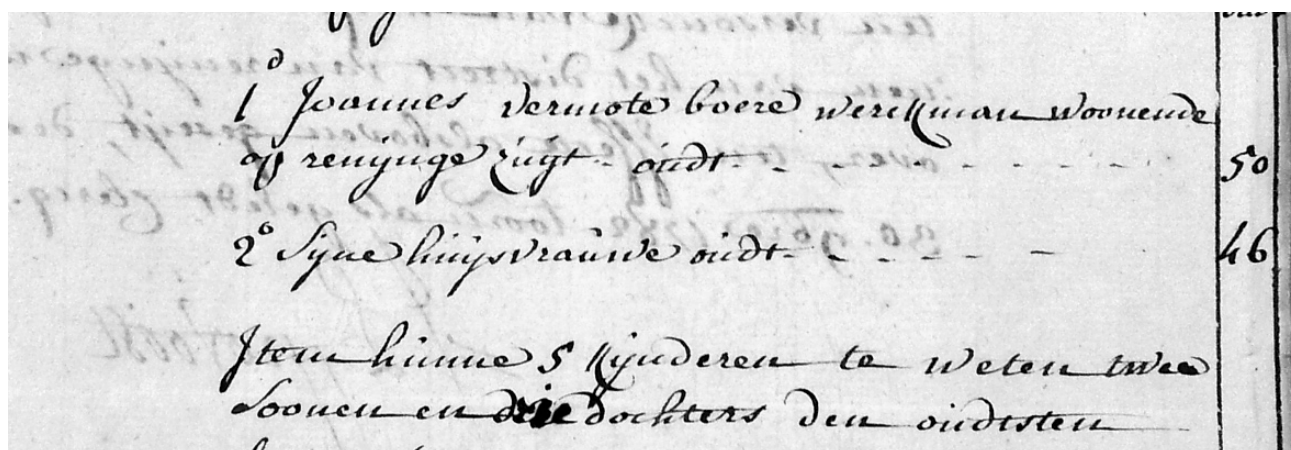 1º Joannes vermote boere werckman woonende
op renijnge zuyt oudt - - - - - - - 50
2º Sijne huijsvrauwe oudt - - - - - - 46
Item hunne 5 kijnderen te weten twee
Soonen en drie dochters den oudsten